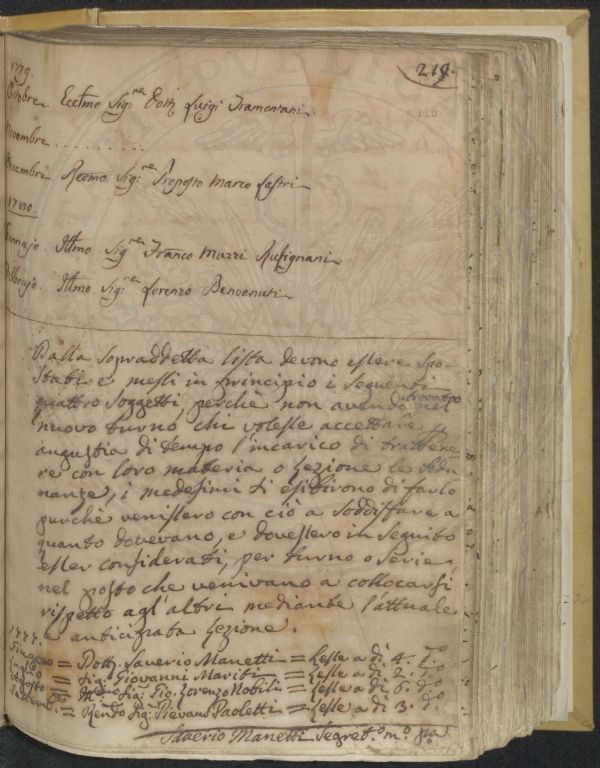 219.
1779.
Ottobre. Ecc.mo Sig.re Dott. Luigi Tramontani.
Novembre . . . . . . . . . .
Dicembre Revmo Sig.re Proposto Marco Lastri.
1780.
Gennajo. Illmo Sig.re Franco Muzzi Rufignani.
Febbrajo. Illmo Sig.re Lorenzo Benvenuti.
Dalla sopraddetta lista devono essere spo-
stati e messi in principio i seguenti
quattro soggetti perchè non avendo ritrovato nel
nuovo turno chi volesse accettare in
augustia di tempo l'incarico di trattene
re con loro materia o Lezione le Adu
nanze, i medesimi si esibirono di farlo
purchè venissero con ciò a soddisfare a
quanto dovevano, e dovessero in seguito
esser considerati, per turno o serie,
nel posto che venivano a collocarsi
rispetto agl'altri mediante l'attuale
e anticipata Lezione.
1777.
Giugno = Dott. Saverio Manetti = Lesse a dì 4. do
Luglio = Sig. Giovanni Mariti = Lesse a dì 2. do
Agosto = Sig. Gio. Lorenzo Nobili = Lesse a dì 6. do
Settem. = Revdo Sig. Pievano Paoletti = Lesse a dì 3. do
Saverio Manetti Segret.o m.o pa